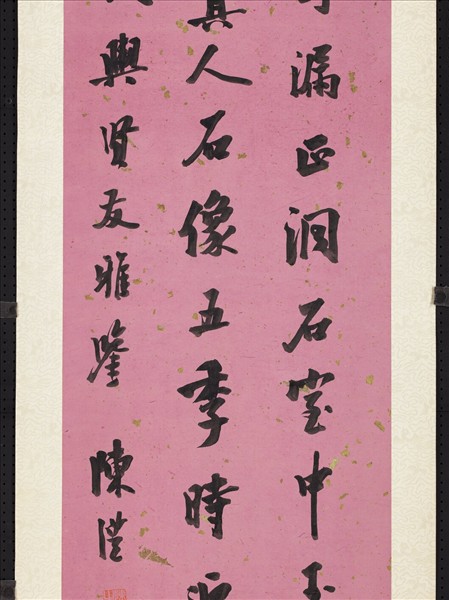 漏正洞石室中玉
真人石像五季時
興賢友雅鑒 陳澧